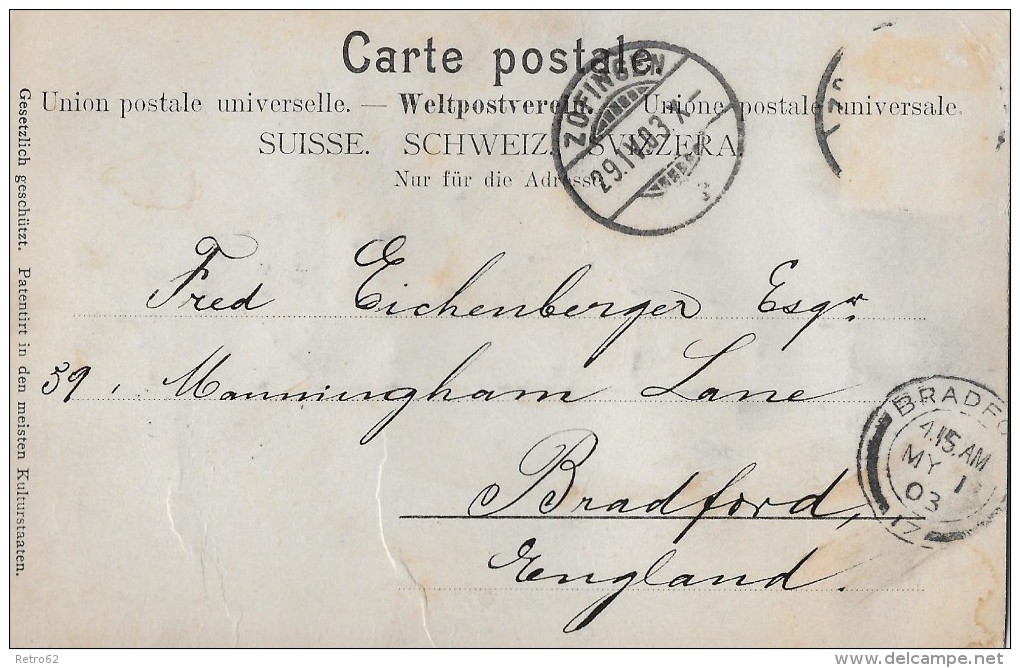 Carte postale.
Union postale universelle. — Weltpostverein. — Unione postale universale.
SUISSE. SCHWEIZ. SVIZZERA.
Nur für die Adresse.
ZOFINGEN
29.IV.03.X–
3
ZO
Fred Eichenberger Esqr.
39, Manningham Lane
Bradford,
England.
BRADFO
4.15.AM
MY 1
03
17
Gesetzlich geschützt. Patentirt in den meisten Kulturstaaten.
Retro62
delcampe.net